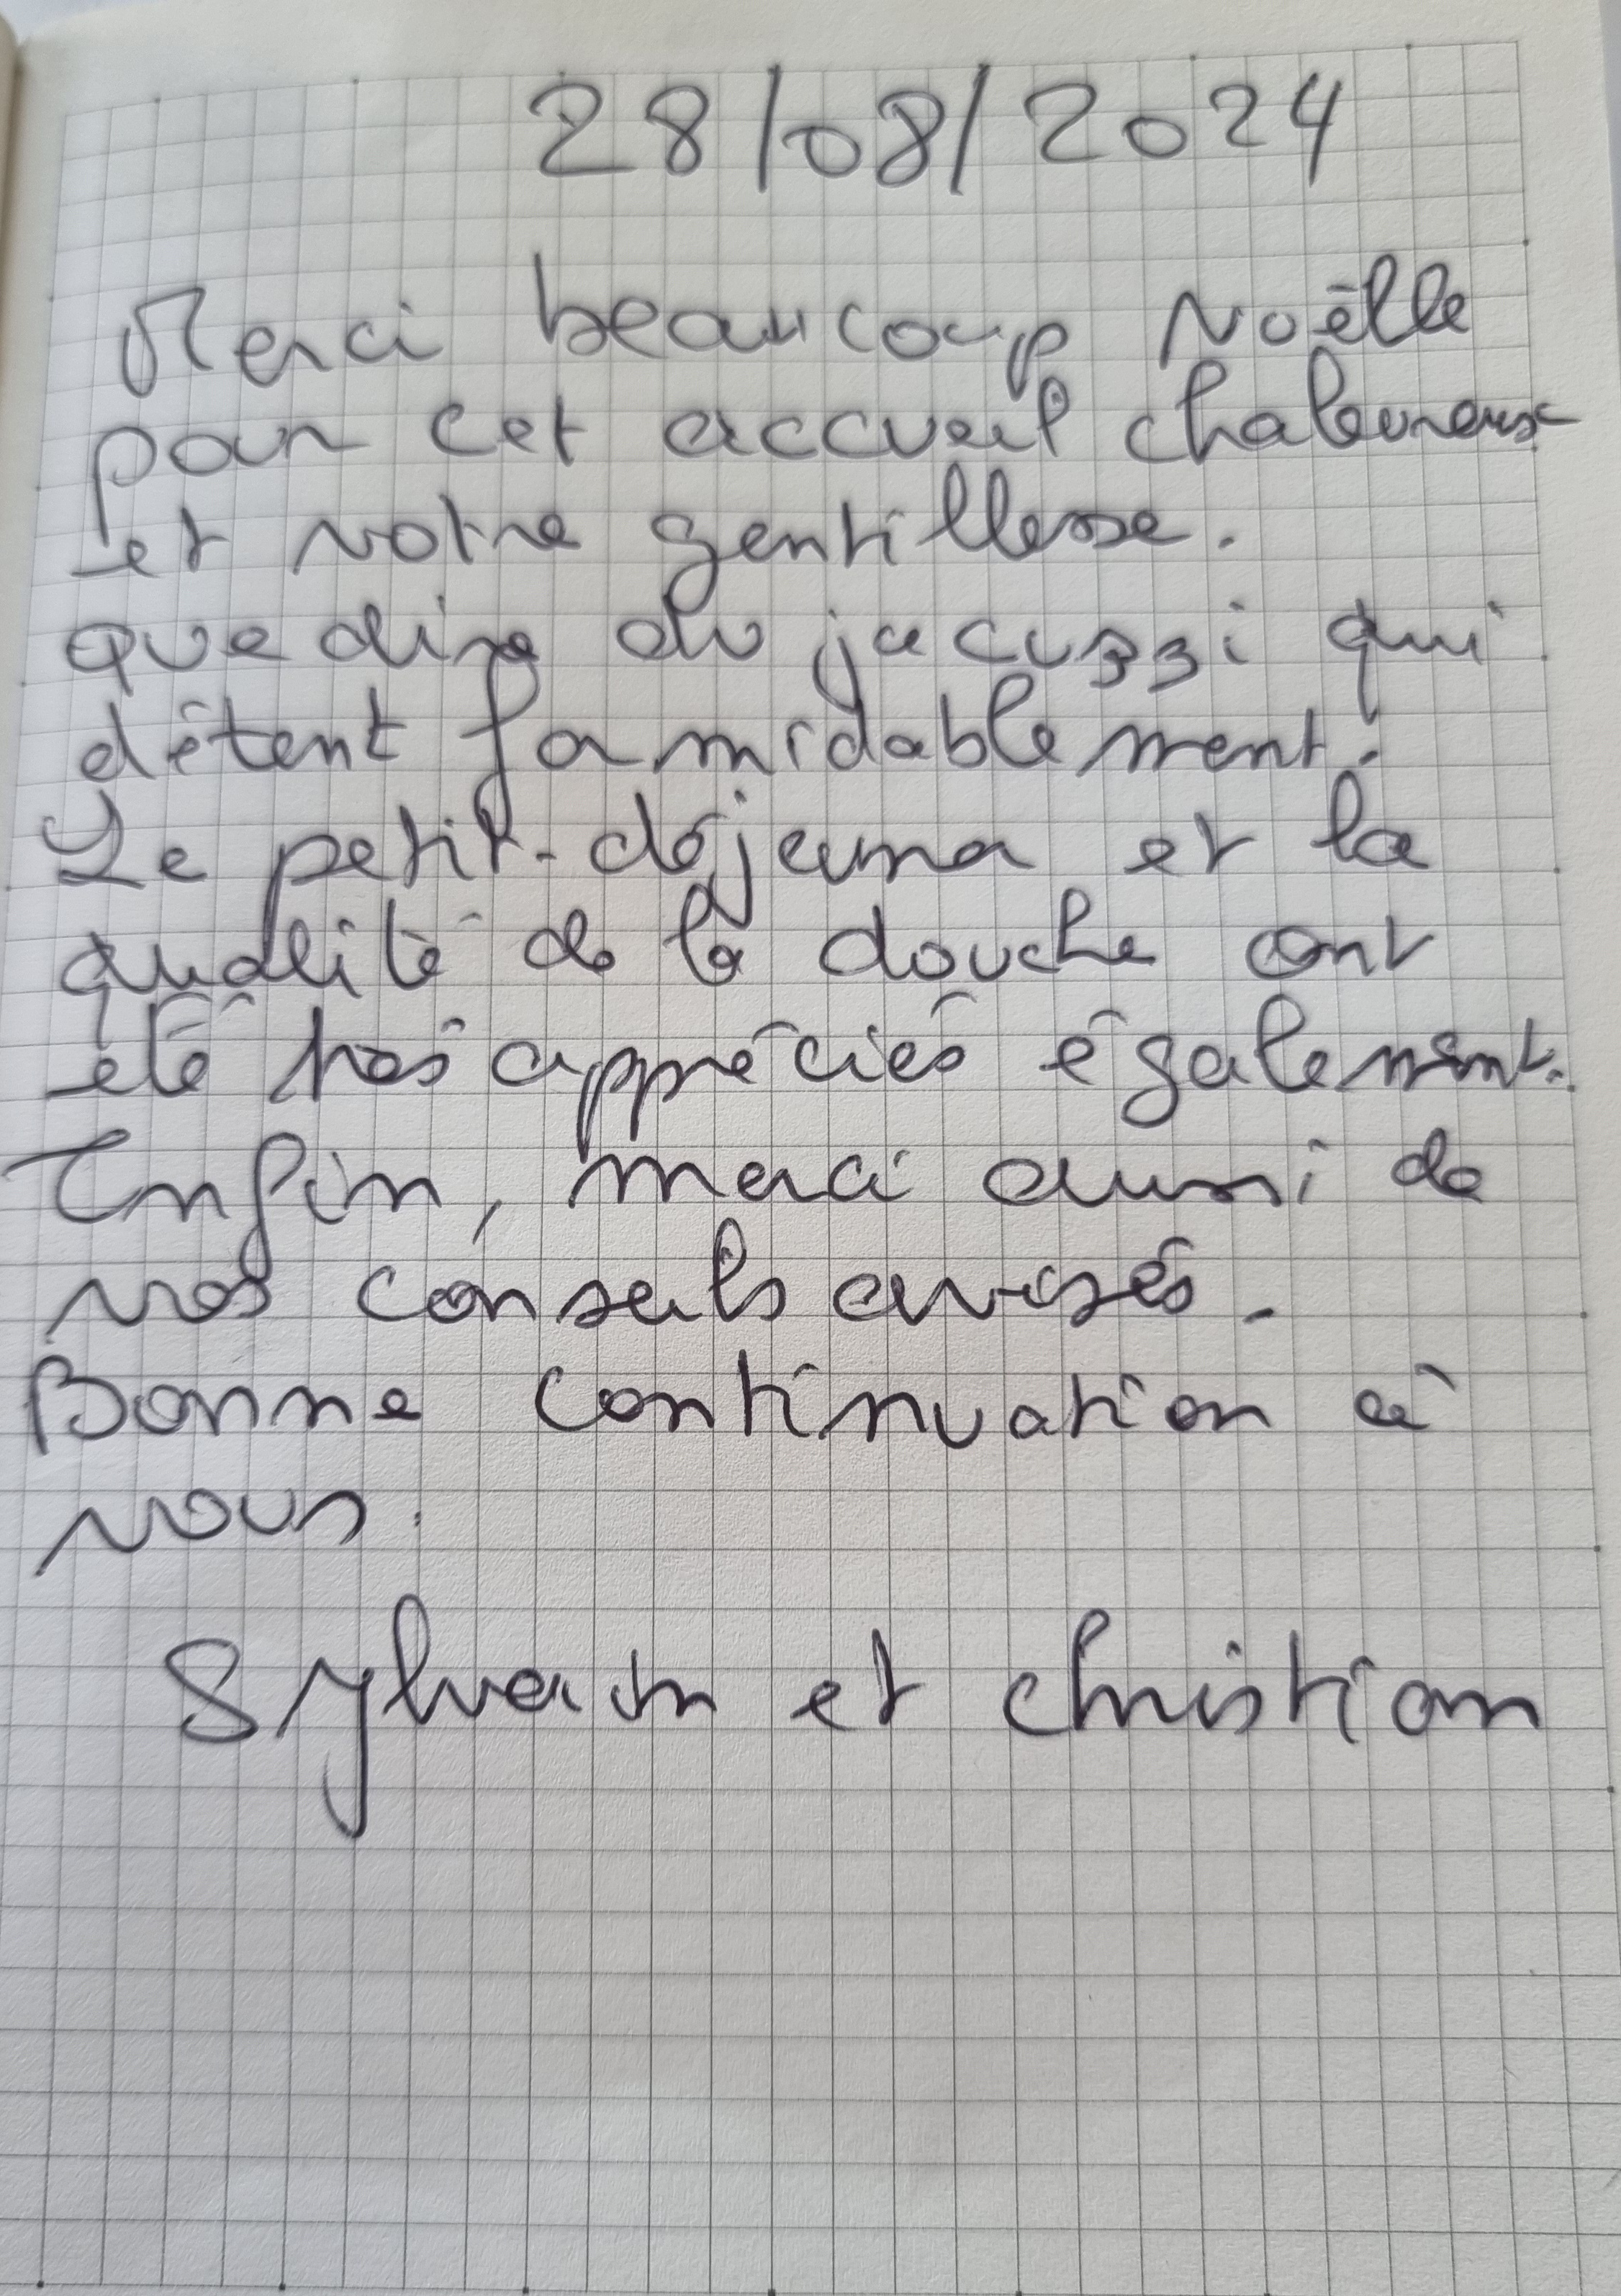 28/08/2024
Merci beaucoup Noëlle
pour cet accueil chaleureux
et votre gentillesse.
que dire du jacuzzi qui
détent formidablement.
Le petit-déjeuner et la
qualité de la douche ont
été très appréciés également.
Enfin, merci aussi de
vos conseils avisés.
Bonne continuation à
vous.
Sylvain et christian